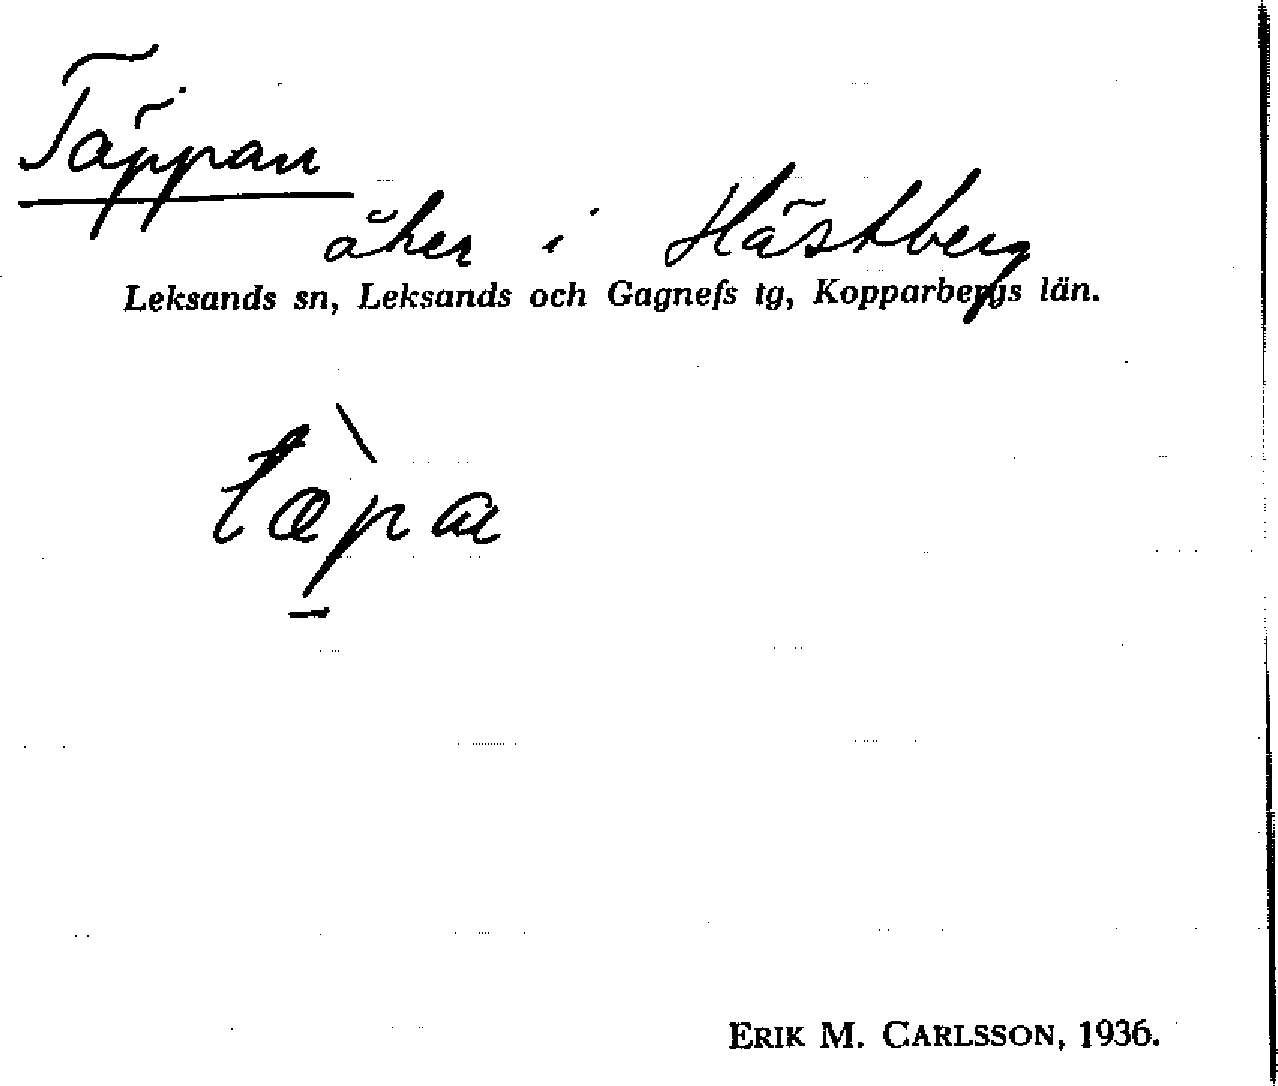 Täppan
åker i Hästberg
Leksands sn, Leksands och Gagnefs tg, Kopparbergs län.
tæ̀p̲a
ERIK M. CARLSSON, 1936.